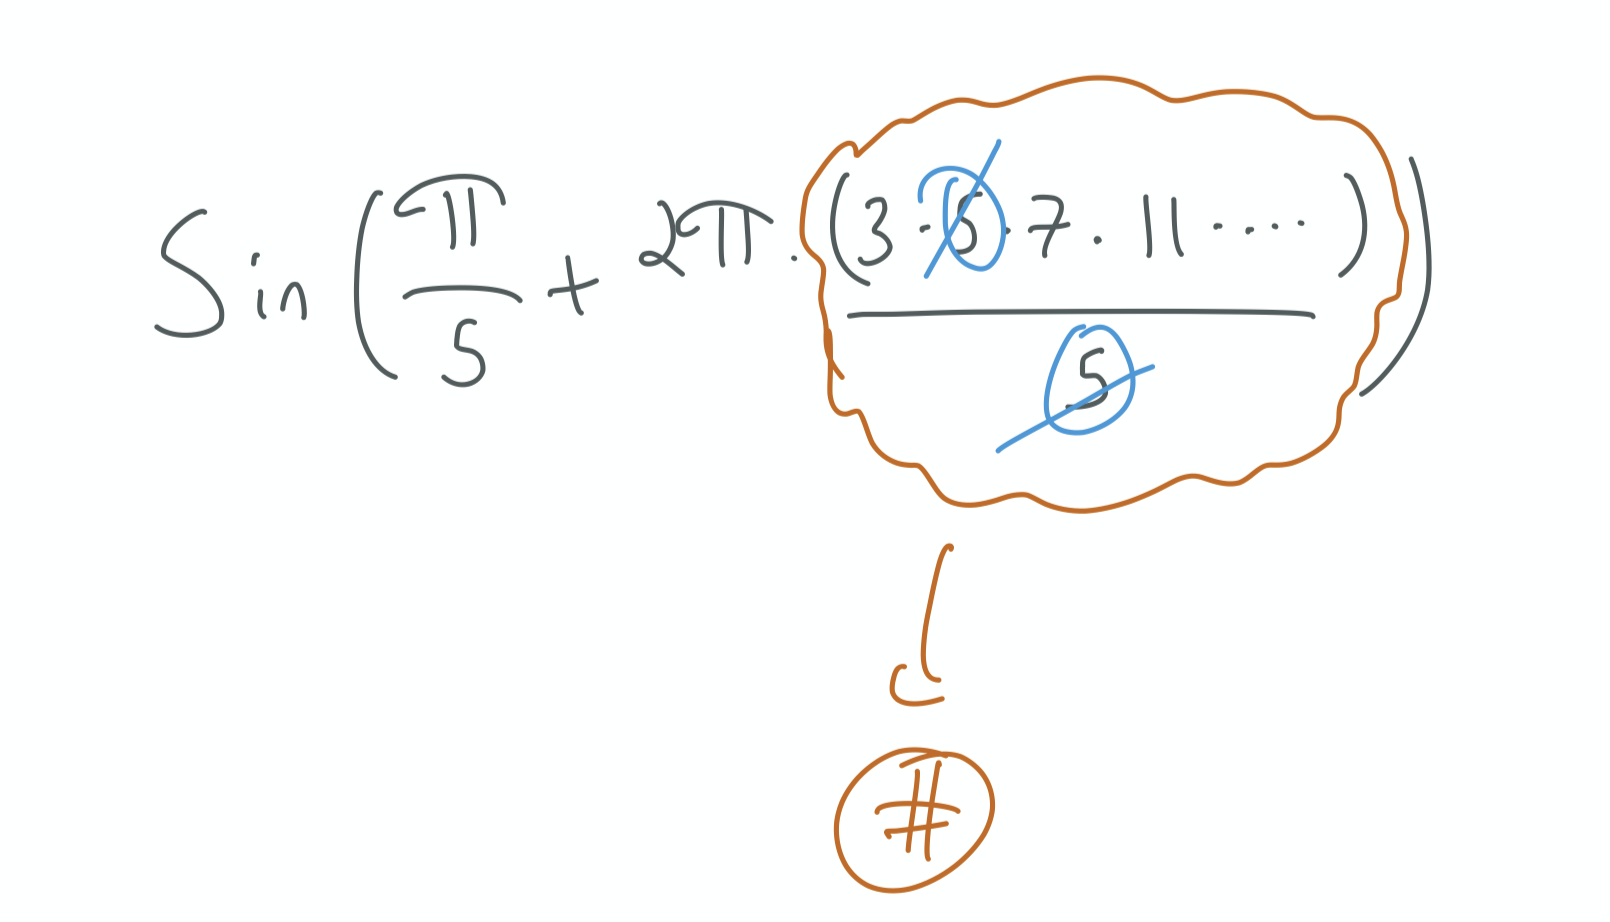 Sin(π/5 + 2π · (3 · 5 · 7 · 11 · ····)/5)
#